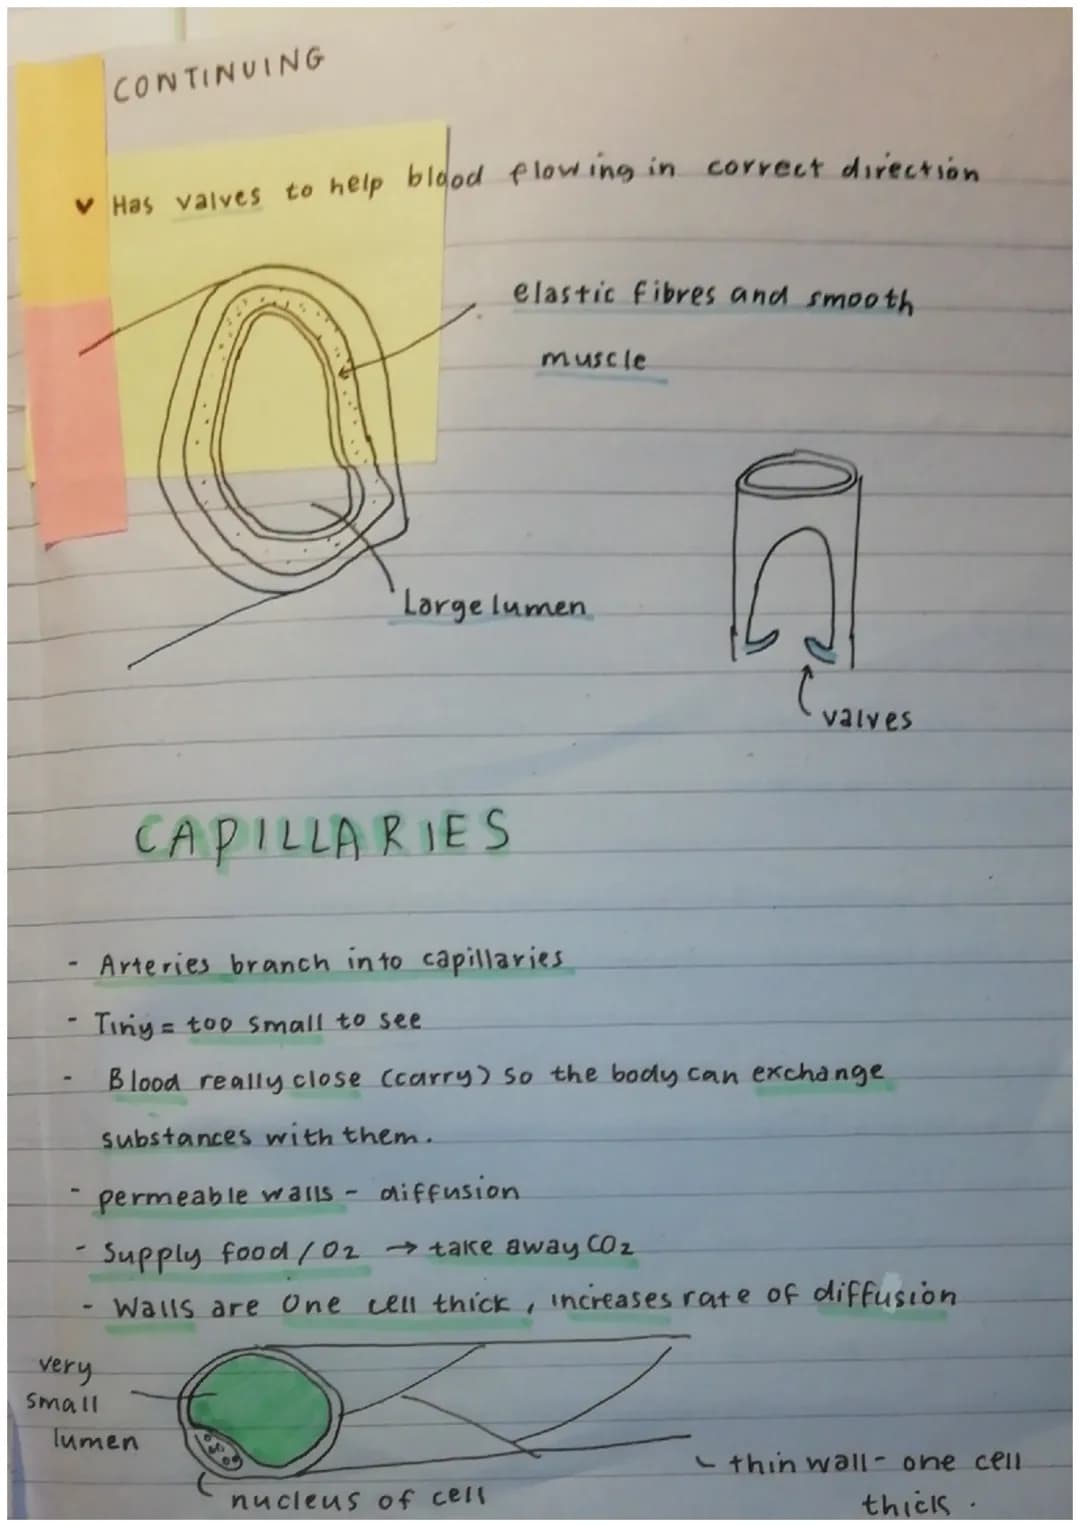 CONTINUING
Has valves to help blood flowing in correct direction
elastic fibres and smooth
muscle
Large lumen
valves
CAPILLARIES
- Arteries branch into capillaries
- Tiny = too small to see
- Blood really close (carry) so the body can exchange
substances with them.
- permeable walls - diffusion
- Supply food / O2 → take away CO2
- Walls are One cell thick, increases rate of diffusion
very
small
lumen
nucleus of cell
thin wall - one cell
thick.